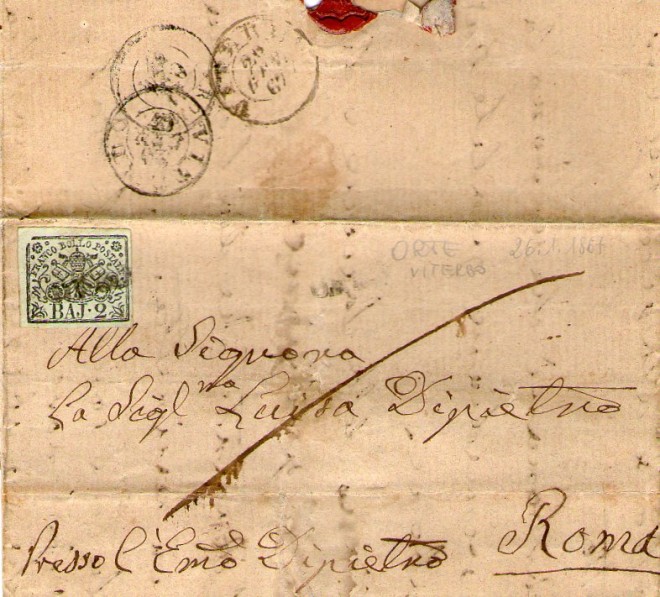 FRANCO BOLLO POSTALE
BAJ·2
ORTE
VITERBO
26.1.1867
Alla Signora
La Sigl ma Luisa Dipietro
Presso l'Emo Dipietro
Roma